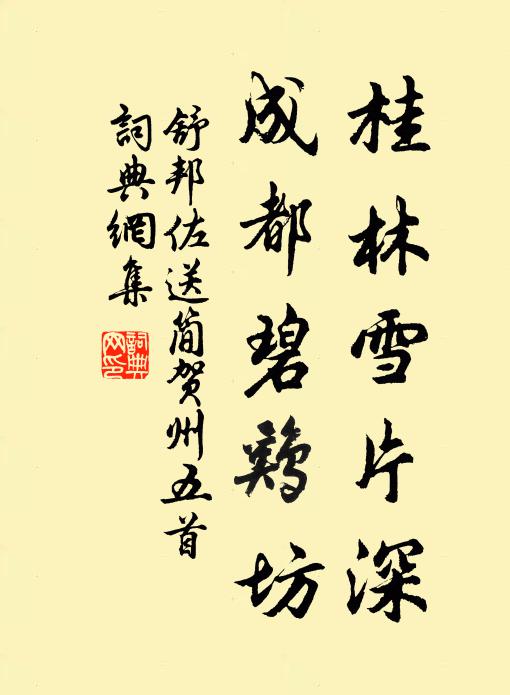 桂林雪片深
成都碧鷄坊
舒邦佐送简贺州五首
詞典網集
詞典網印